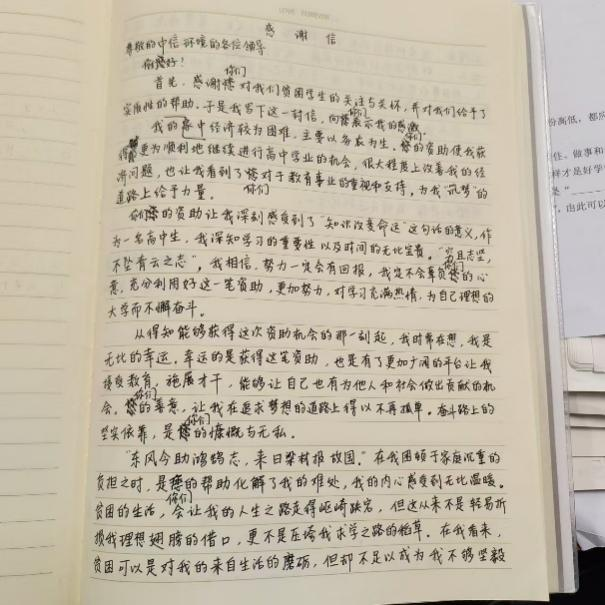 感谢信
尊敬的中信环境的各位领导
你们好!
首先,感谢你们对我们贫困学生的关注与关怀,并对我们给予了
实质性的帮助。于是我写下这一封信,向你们表示我的感激
我的家中经济较为困难,主要以务农为生,你们的资助使我获
得更为顺利地继续进行高中学业的机会,很大程度上改善我的经
济问题,也让我看到了你们对于教育事业的重视和支持,为我“筑梦”的
道路上给予力量。
你们的资助让我深刻感受到了“知识改变命运”这句话的意义,作
为一名高中生,我深知学习的重要性以及时间的无比宝贵。“穷且志坚,
不坠青云之志”,我相信,努力一定会有回报,我定不会辜负你们的心
意,充分利用好这一笔资助,更加努力,对学习充满热情,为自己理想的
大学而不懈奋斗。
从得知能够获得这次资助机会的那一刻起,我时常在想,我是
无比的幸运。幸运的是获得这笔资助,也是有了更加广阔的平台让我
接受教育,施展才干,能够让自己也有为他人和社会做出贡献的机
会。你们的善意,让我在追求梦想的道路上得以不再孤单。奋斗路上的
坚实依靠,是你们的慷慨与无私。
“东风今助鸿鹄志,来日梁材报故园。”在我困顿于家庭沉重的
负担之时,是你们的帮助化解了我的难处,我的内心感受到无比温暖。
贫困的生活,会让我的人生之路走得崎岖跌宕,但这从来不是轻易折
损我理想翅膀的借口,更不是压垮我求学之路的稻草。在我看来,
贫困可以是对我的来自生活的磨砺,但却不足以成为我不够坚毅
份高低,都应
任、做事和
样才是好学
是“
”,由此可以